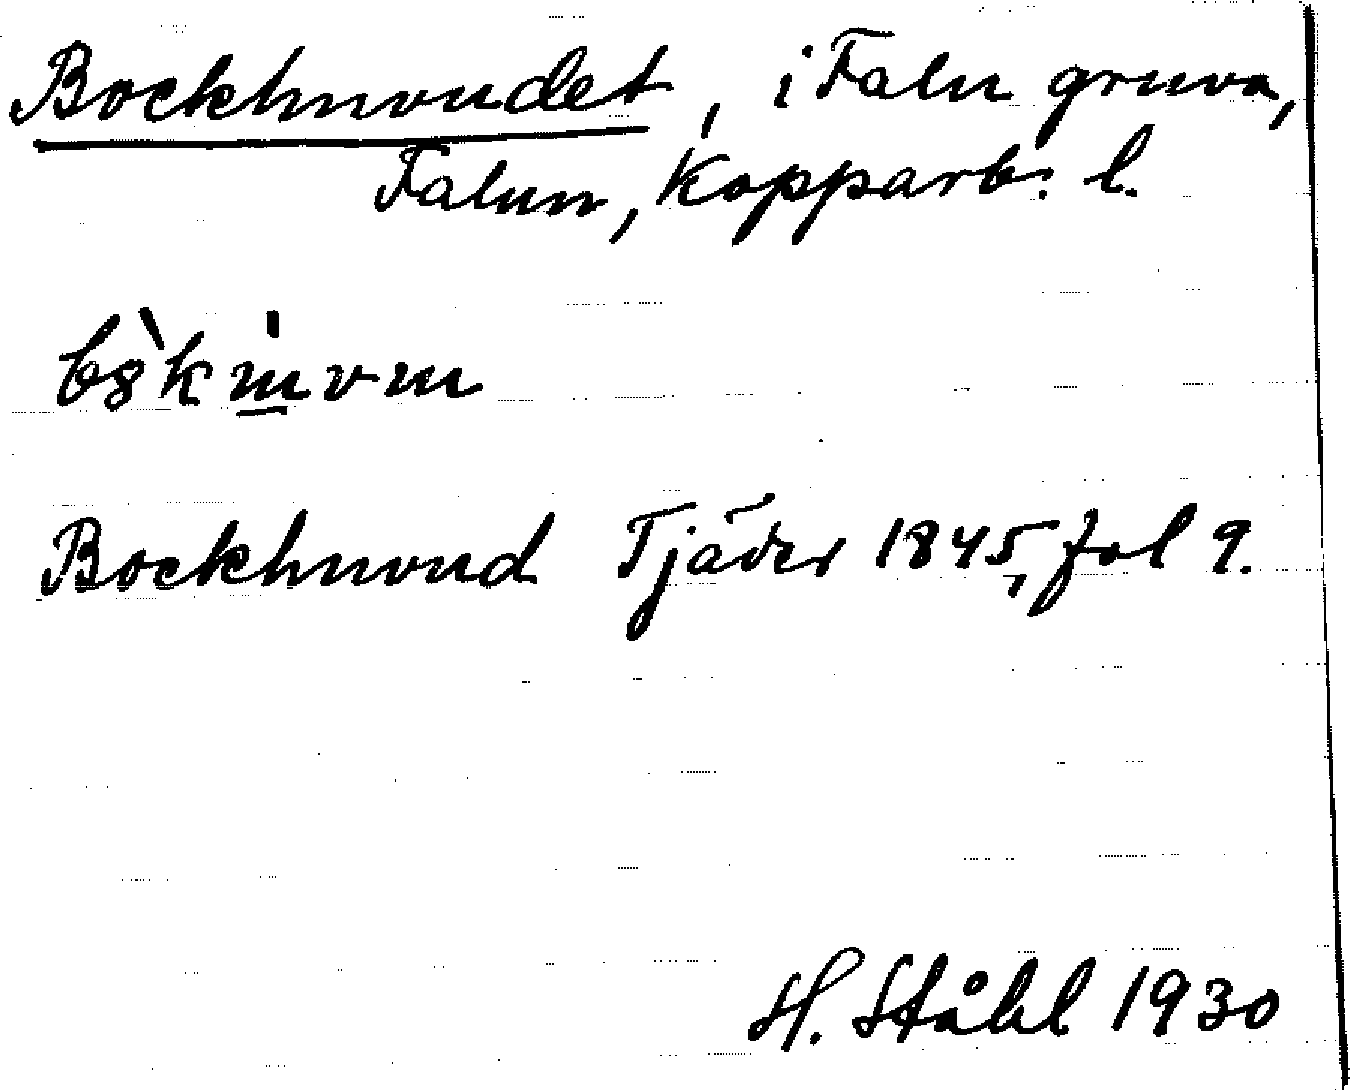 Bockhuvudet, i Falu gruva,
Falun, Kopparb. l.
Bockhuvud Tjäder 1845, fol 9.
H. Ståhl 1930